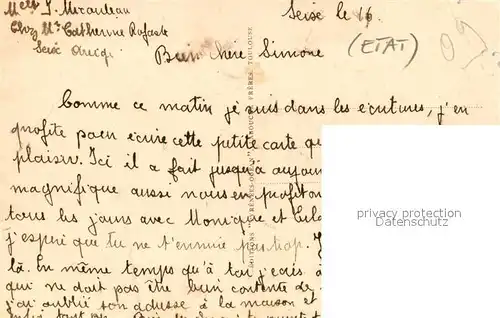 Melle J. Mirouleau
Seix le 16
Chez Me Catherine Rofaste
Seix Ariège
(ETAT)
09
Bien chère Simone
Comme ce matin je suis dans les écritures, j'en
profite pour écrire cette petite carte
plaisir. Ici il a fait jusqu'à
magnifique aussi nous en
tous les jours avec Monique et
j'espère que tu ne t'ennuie pas trop.
là. En même temps qu'à toi j'écris à
qui ne doit pas être bien contente de
j'ai oublié son adresse à la maison et
EDITIONS "PYRÉNÉES-OCÉAN" LABOUCHE FRÈRES, TOULOUSE
privacy protection
Datenschutz